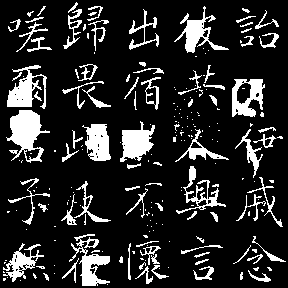 詒伊戚念
彼共人興言
出宿豈不懷
歸畏此反覆
嗟爾君子無